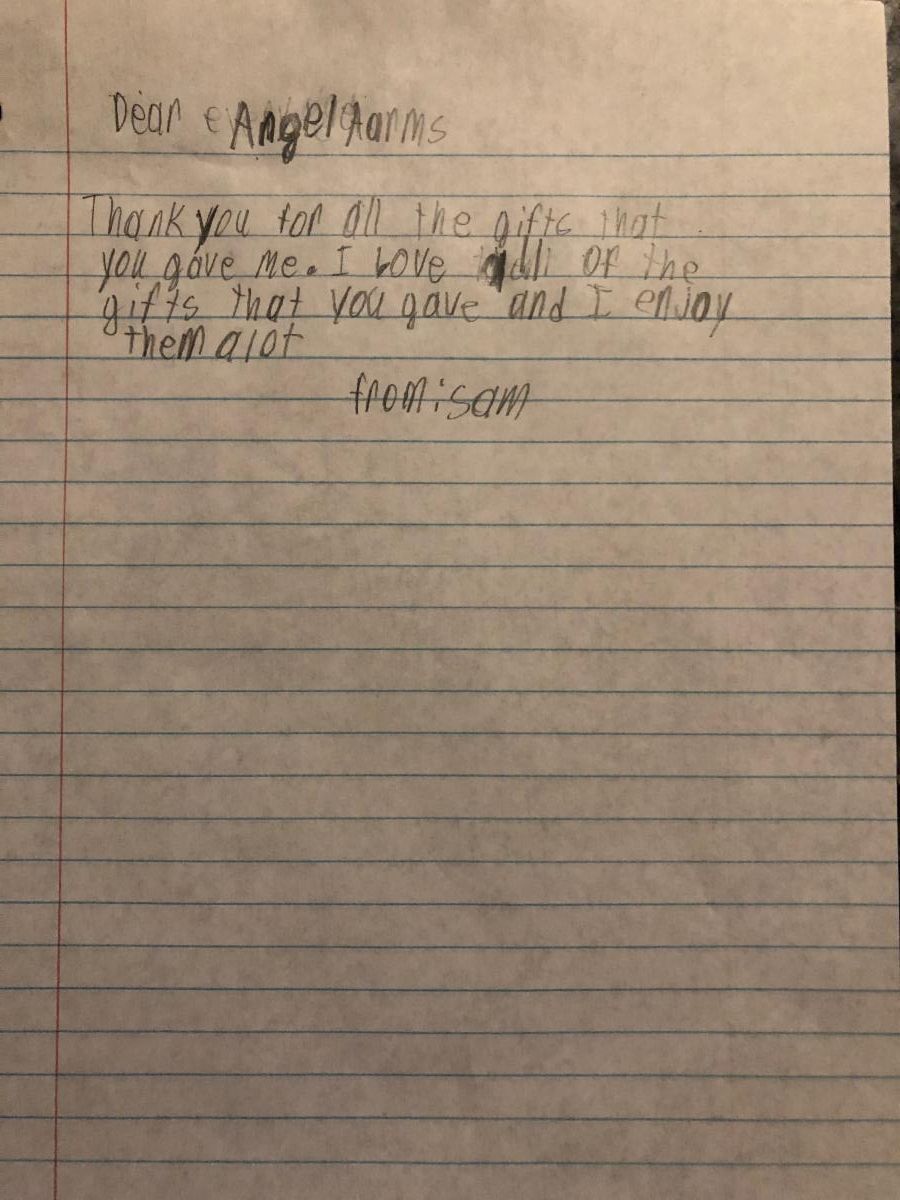 Dear Angel Aarms
Thank you for all the gifts that
you gave me. I Love all of the
gifts that you gave and I enjoy
them alot
from: sam